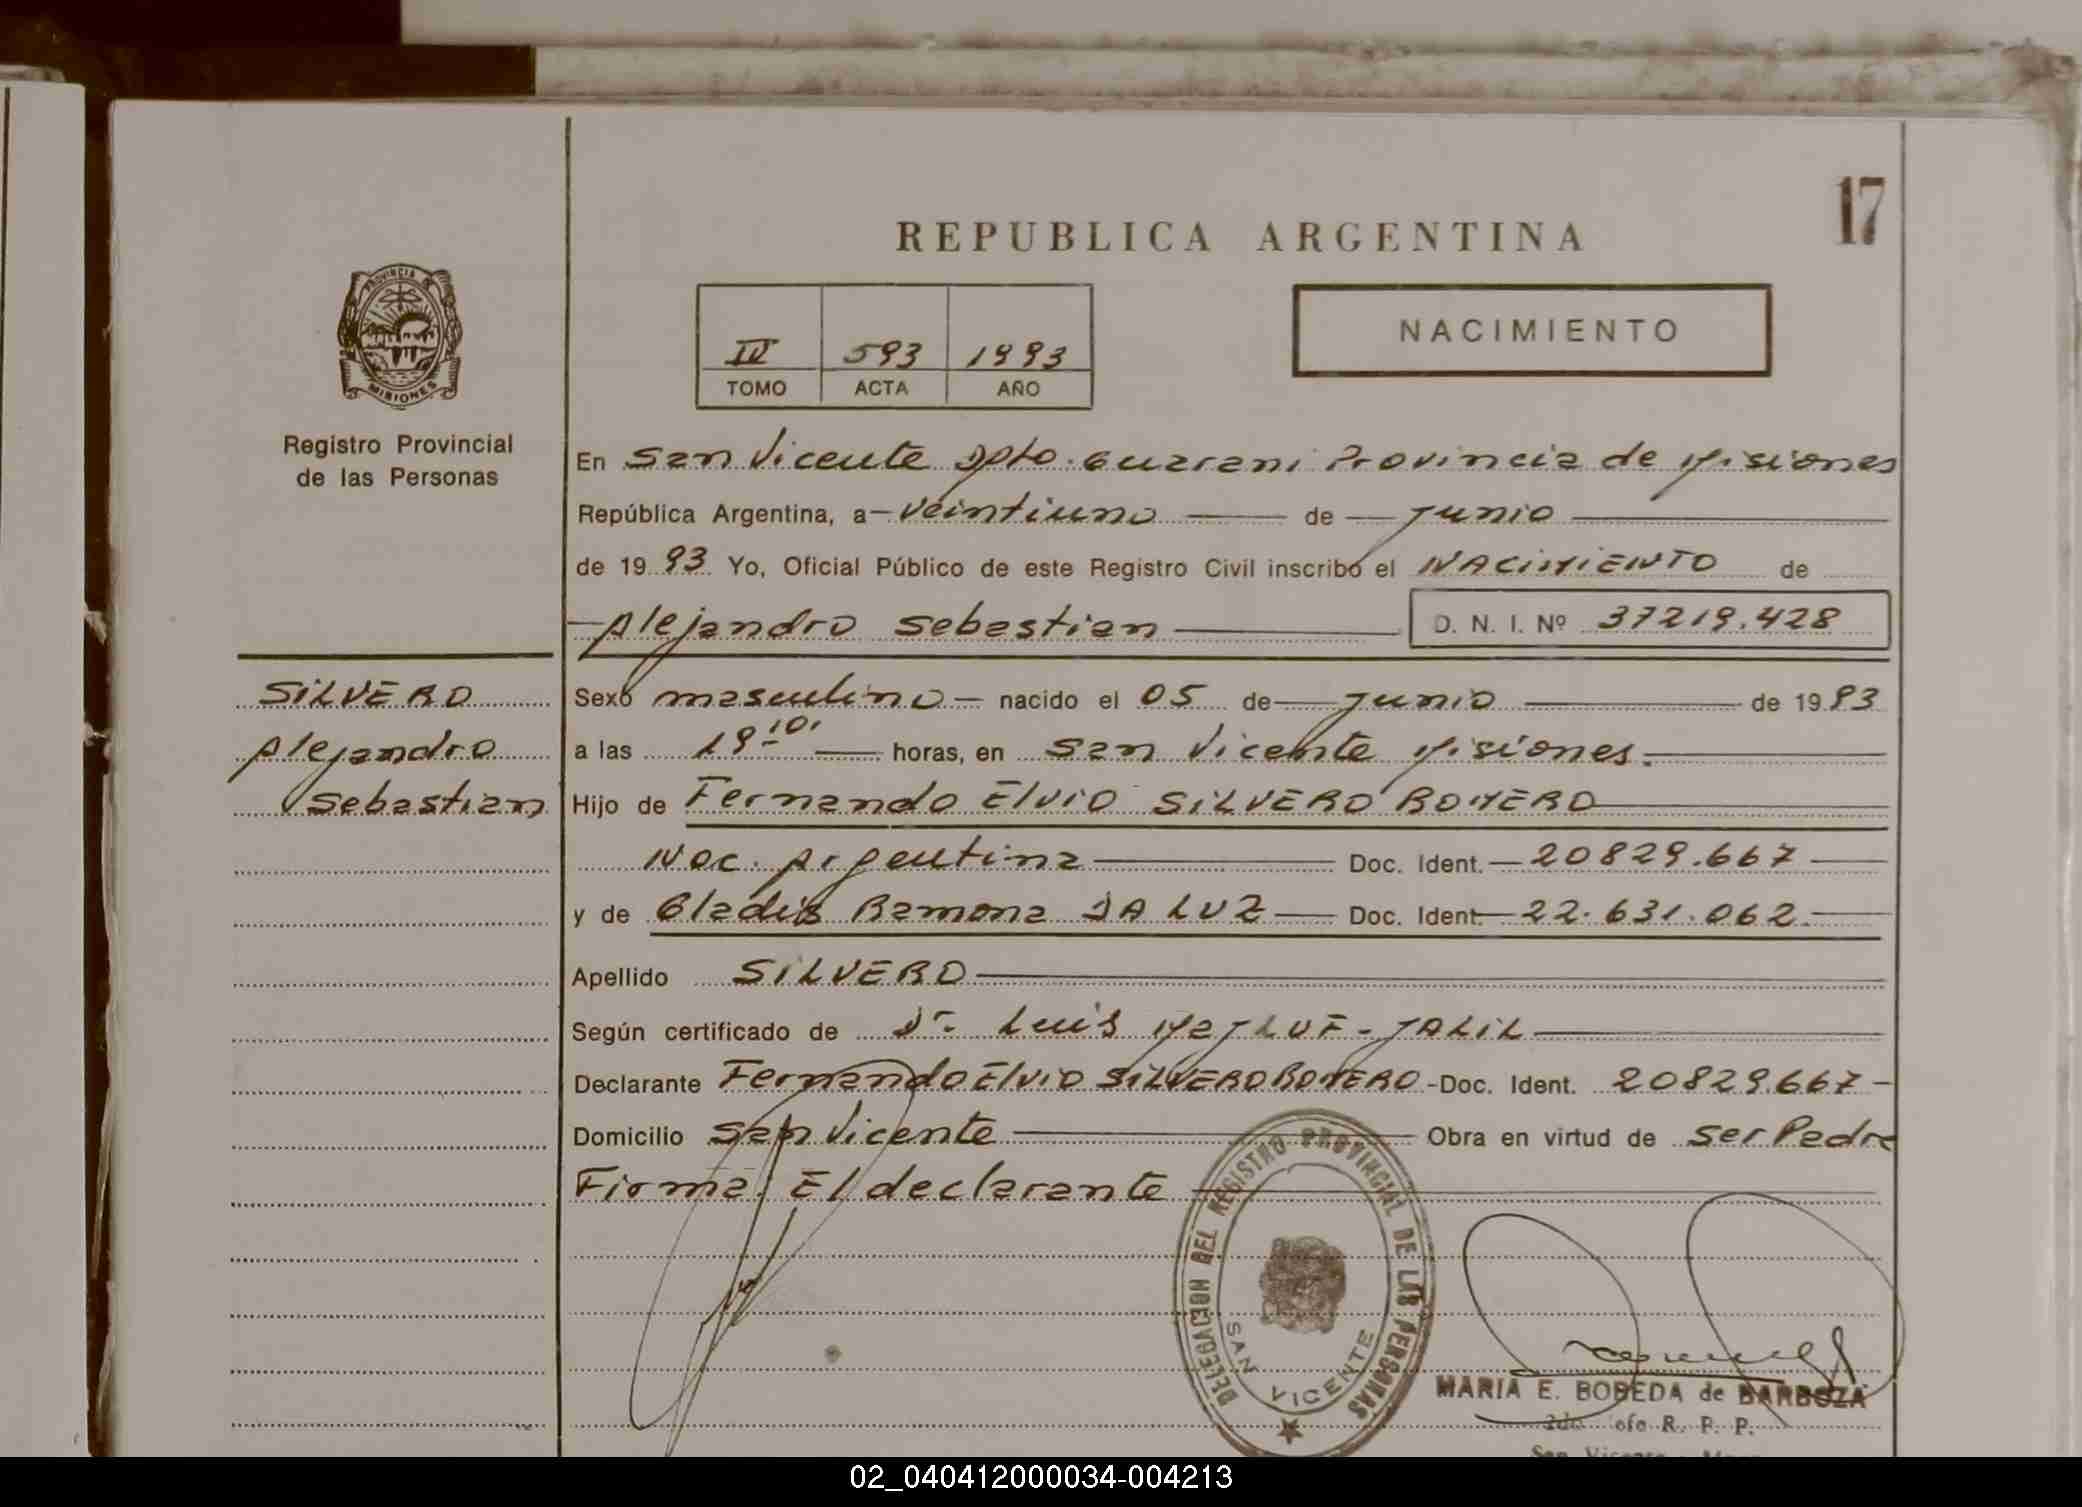 17
REPUBLICA ARGENTINA
PROVINCIA DE
MISIONES
Registro Provincial
de las Personas
IV 593 1993
TOMO ACTA AÑO
NACIMIENTO
En San Vicente Dpto. Guarani Provincia de Misiones
República Argentina, a veintiuno de Junio
de 1993 Yo, Oficial Público de este Registro Civil inscribo el NACIMIENTO de
Alejandro Sebastian D. N. I. Nº 37219.428
SILVERO
Alejandro
Sebastian
Sexo masculino nacido el 05 de Junio de 1993
a las 19 10' horas, en San Vicente Misiones.
Hijo de Fernando Elvio SILVERO ROMERO
Nac. Argentina Doc. Ident. 20829.667
y de Gladis Ramona DA LUZ Doc. Ident. 22.631.062.
Apellido SILVERO
Según certificado de Dr. Luis JALIL
Declarante Fernando Elvio SILVERO ROMERO - Doc. Ident. 20829.667 -
Domicilio San Vicente Obra en virtud de ser Padre
Firma: El declarante
DELEGACION DEL REGISTRO PROVINCIAL DE LAS PERSONAS
SAN VICENTE
MARIA E. BOBEDA de BARBOZA
R. P. P.
San Vicente
02_040412000034-004213